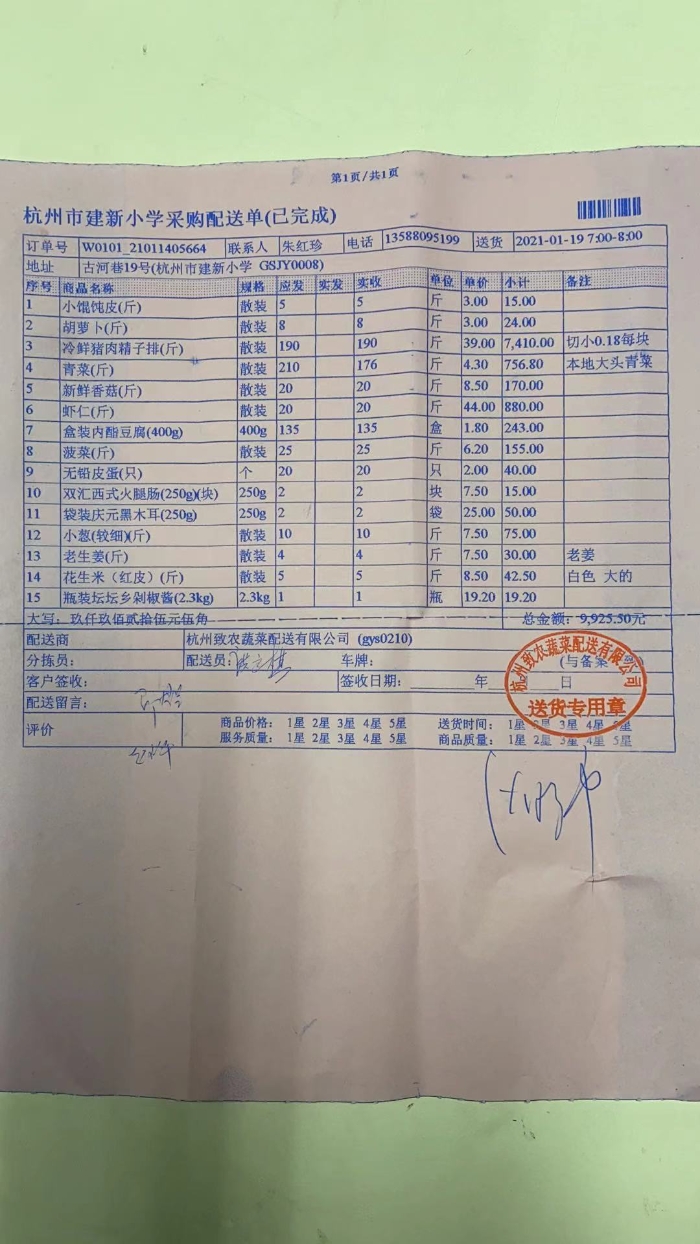 第1页/共1页
杭州市建新小学采购配送单(已完成)
订单号 W0101_21011405664 联系人 朱红珍 电话 13588095199 送货 2021-01-19 7:00-8:00
地址 古河巷19号(杭州市建新小学 GSJY0008)
序号 商品名称 规格 应发 实发 实收 单位 单价 小计 备注
1 小馄饨皮(斤) 散装 5 5 斤 3.00 15.00
2 胡萝卜(斤) 散装 8 8 斤 3.00 24.00
3 冷鲜猪肉精子排(斤) 散装 190 190 斤 39.00 7,410.00 切小0.18每块
4 青菜(斤) 散装 210 176 斤 4.30 756.80 本地大头青菜
5 新鲜香菇(斤) 散装 20 20 斤 8.50 170.00
6 虾仁(斤) 散装 20 20 斤 44.00 880.00
7 盒装内酯豆腐(400g) 400g 135 135 盒 1.80 243.00
8 菠菜(斤) 散装 25 25 斤 6.20 155.00
9 无铅皮蛋(只) 个 20 20 只 2.00 40.00
10 双汇西式火腿肠(250g)(块) 250g 2 2 块 7.50 15.00
11 袋装庆元黑木耳(250g) 250g 2 2 袋 25.00 50.00
12 小葱(较细)(斤) 散装 10 10 斤 7.50 75.00
13 老生姜(斤) 散装 4 4 斤 7.50 30.00 老姜
14 花生米（红皮）(斤) 散装 5 5 斤 8.50 42.50 白色 大的
15 瓶装坛坛乡剁椒酱(2.3kg) 2.3kg 1 1 瓶 19.20 19.20
大写: 玖仟玖佰贰拾伍元伍角 总金额: 9,925.50元
配送商 杭州致农蔬菜配送有限公司 (gys0210)
分拣员: 配送员: 车牌: (与备案
客户签收: 签收日期: 年 日
配送留言:
评价 商品价格: 1星 2星 3星 4星 5星 送货时间: 1星 2星 3星 4星 5星
服务质量: 1星 2星 3星 4星 5星 商品质量: 1星 2星 3星 4星 5星
杭州致农蔬菜配送有限公司
送货专用章